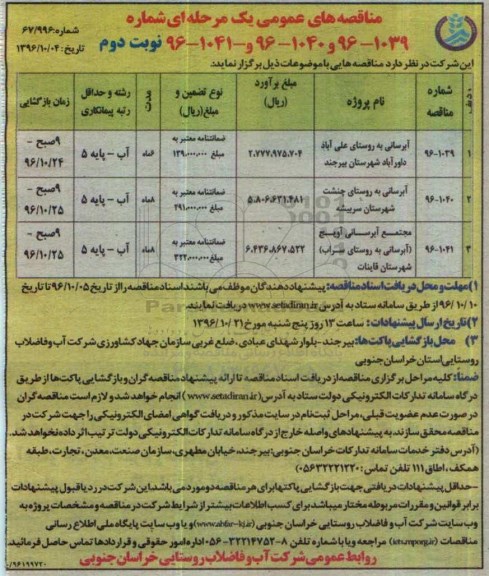 مناقصه های عمومی یک مرحله ای شماره
۱۰۳۹-۹۶ و ۱۰۴۰-۹۶ و ۱۰۴۱-۹۶ نوبت دوم
شماره: ۶۷/۹۹۶
تاریخ: ۱۳۹۶/۱۰/۰۴
این شرکت در نظر دارد مناقصه هایی با موضوعات ذیل برگزار نمایند
ردیف شماره مناقصه نام پروژه مبلغ برآورد (ریال) نوع تضمین و مبلغ (ریال) مدت رشته و حداقل رتبه پیمانکاری زمان بازگشایی
۱ ۹۶-۱۰۳۹ آبرسانی به روستای علی آباد داورآباد شهرستان بیرجند ۲.۷۷۷.۹۷۵.۷۰۴ ضمانتنامه معتبر به مبلغ ۱۳۹.۰۰۰.۰۰۰ ۶ماه آب - پایه ۵ ۹صبح - ۹۶/۱۰/۲۴
۲ ۹۶-۱۰۴۰ آبرسانی به روستای چنشت شهرستان سربیشه ۵.۸۰۶.۶۳۱.۴۸۱ ضمانتنامه معتبر به مبلغ ۲۹۱.۰۰۰.۰۰۰ ۸ماه آب - پایه ۵ ۹صبح - ۹۶/۱۰/۲۵
۳ ۹۶-۱۰۴۱ مجتمع آبرسانی آویج (آبرسانی به روستای شهرستان قاینات ۶.۴۳۶.۸۶۷.۵۲۲ ضمانتنامه معتبر به مبلغ ۳۲۲.۰۰۰.۰۰۰ ۸ماه آب - پایه ۵ ۹صبح - ۹۶/۱۰/۲۵
۱) مهلت و محل دریافت اسناد مناقصه: پیشنهاد دهندگان موظف می باشند اسناد مناقصه را از تاریخ ۹۶/۱۰/۰۵ تا تاریخ
۹۶/۱۰/۱۰ از طریق سامانه ستاد به آدرس www.setadiran.ir دریافت نمایند.
۲) تاریخ ارسال پیشنهادات: ساعت ۱۳ روز پنج شنبه مورخ ۱۳۹۶/۱۰/۲۱
۳) محل بازگشایی پاکت ها: بیرجند-بلوار شهدای عبادی، ضلع غربی سازمان جهاد کشاورزی شرکت آب و فاضلاب
روستایی استان خراسان جنوبی
ضمناً: کلیه مراحل برگزاری مناقصه از دریافت اسناد مناقصه تا ارائه پیشنهاد مناقصه گران و بازگشایی پاکت ها از طریق
درگاه سامانه تدارکات الکترونیکی دولت ستاد به آدرس (www.setadiran.ir) انجام خواهد شد و لازم است مناقصه گران
در صورت عدم عضویت قبلی، مراحل ثبت نام در سایت مذکور و دریافت گواهی امضای الکترونیکی را جهت شرکت در
مناقصه محقق سازند. به پیشنهادهای واصله خارج از درگاه سامانه تدارکات الکترونیکی دولت ترتیب اثر داده نخواهد شد.
(آدرس دفتر خدمات سامانه تدارکات خراسان جنوبی: بیرجند، خیابان مطهری، سازمان صنعت، معدن، تجارت، طبقه
همکف، اطاق ۱۱۱ تلفن تماس: ۰۵۶۳۲۲۲۱۲۲۰)
-حداقل پیشنهادات دریافتی جهت بازگشایی پاکتها برای هر مناقصه دو مورد می باشد. این شرکت در رد یا قبول پیشنهادات
برابر قوانین و مقررات مربوطه مختار میباشد. برای کسب اطلاعات بیشتر از شرایط شرکت در مناقصه و مشخصات پروژه به
وب سایت شرکت آب و فاضلاب روستایی خراسان جنوبی (www.abfar-kj.ir) و یا وب سایت پایگاه ملی اطلاع رسانی
مناقصات (iets.mporg.ir) مراجعه و یا با شماره تلفن ۸-۳۲۲۱۴۷۵۲-۰۵۶ اداره امور حقوقی و قراردادها تماس حاصل فرمائید.
روابط عمومی شرکت آب و فاضلاب روستایی خراسان جنوبی
/۹۶۱۹۹۷۲۰